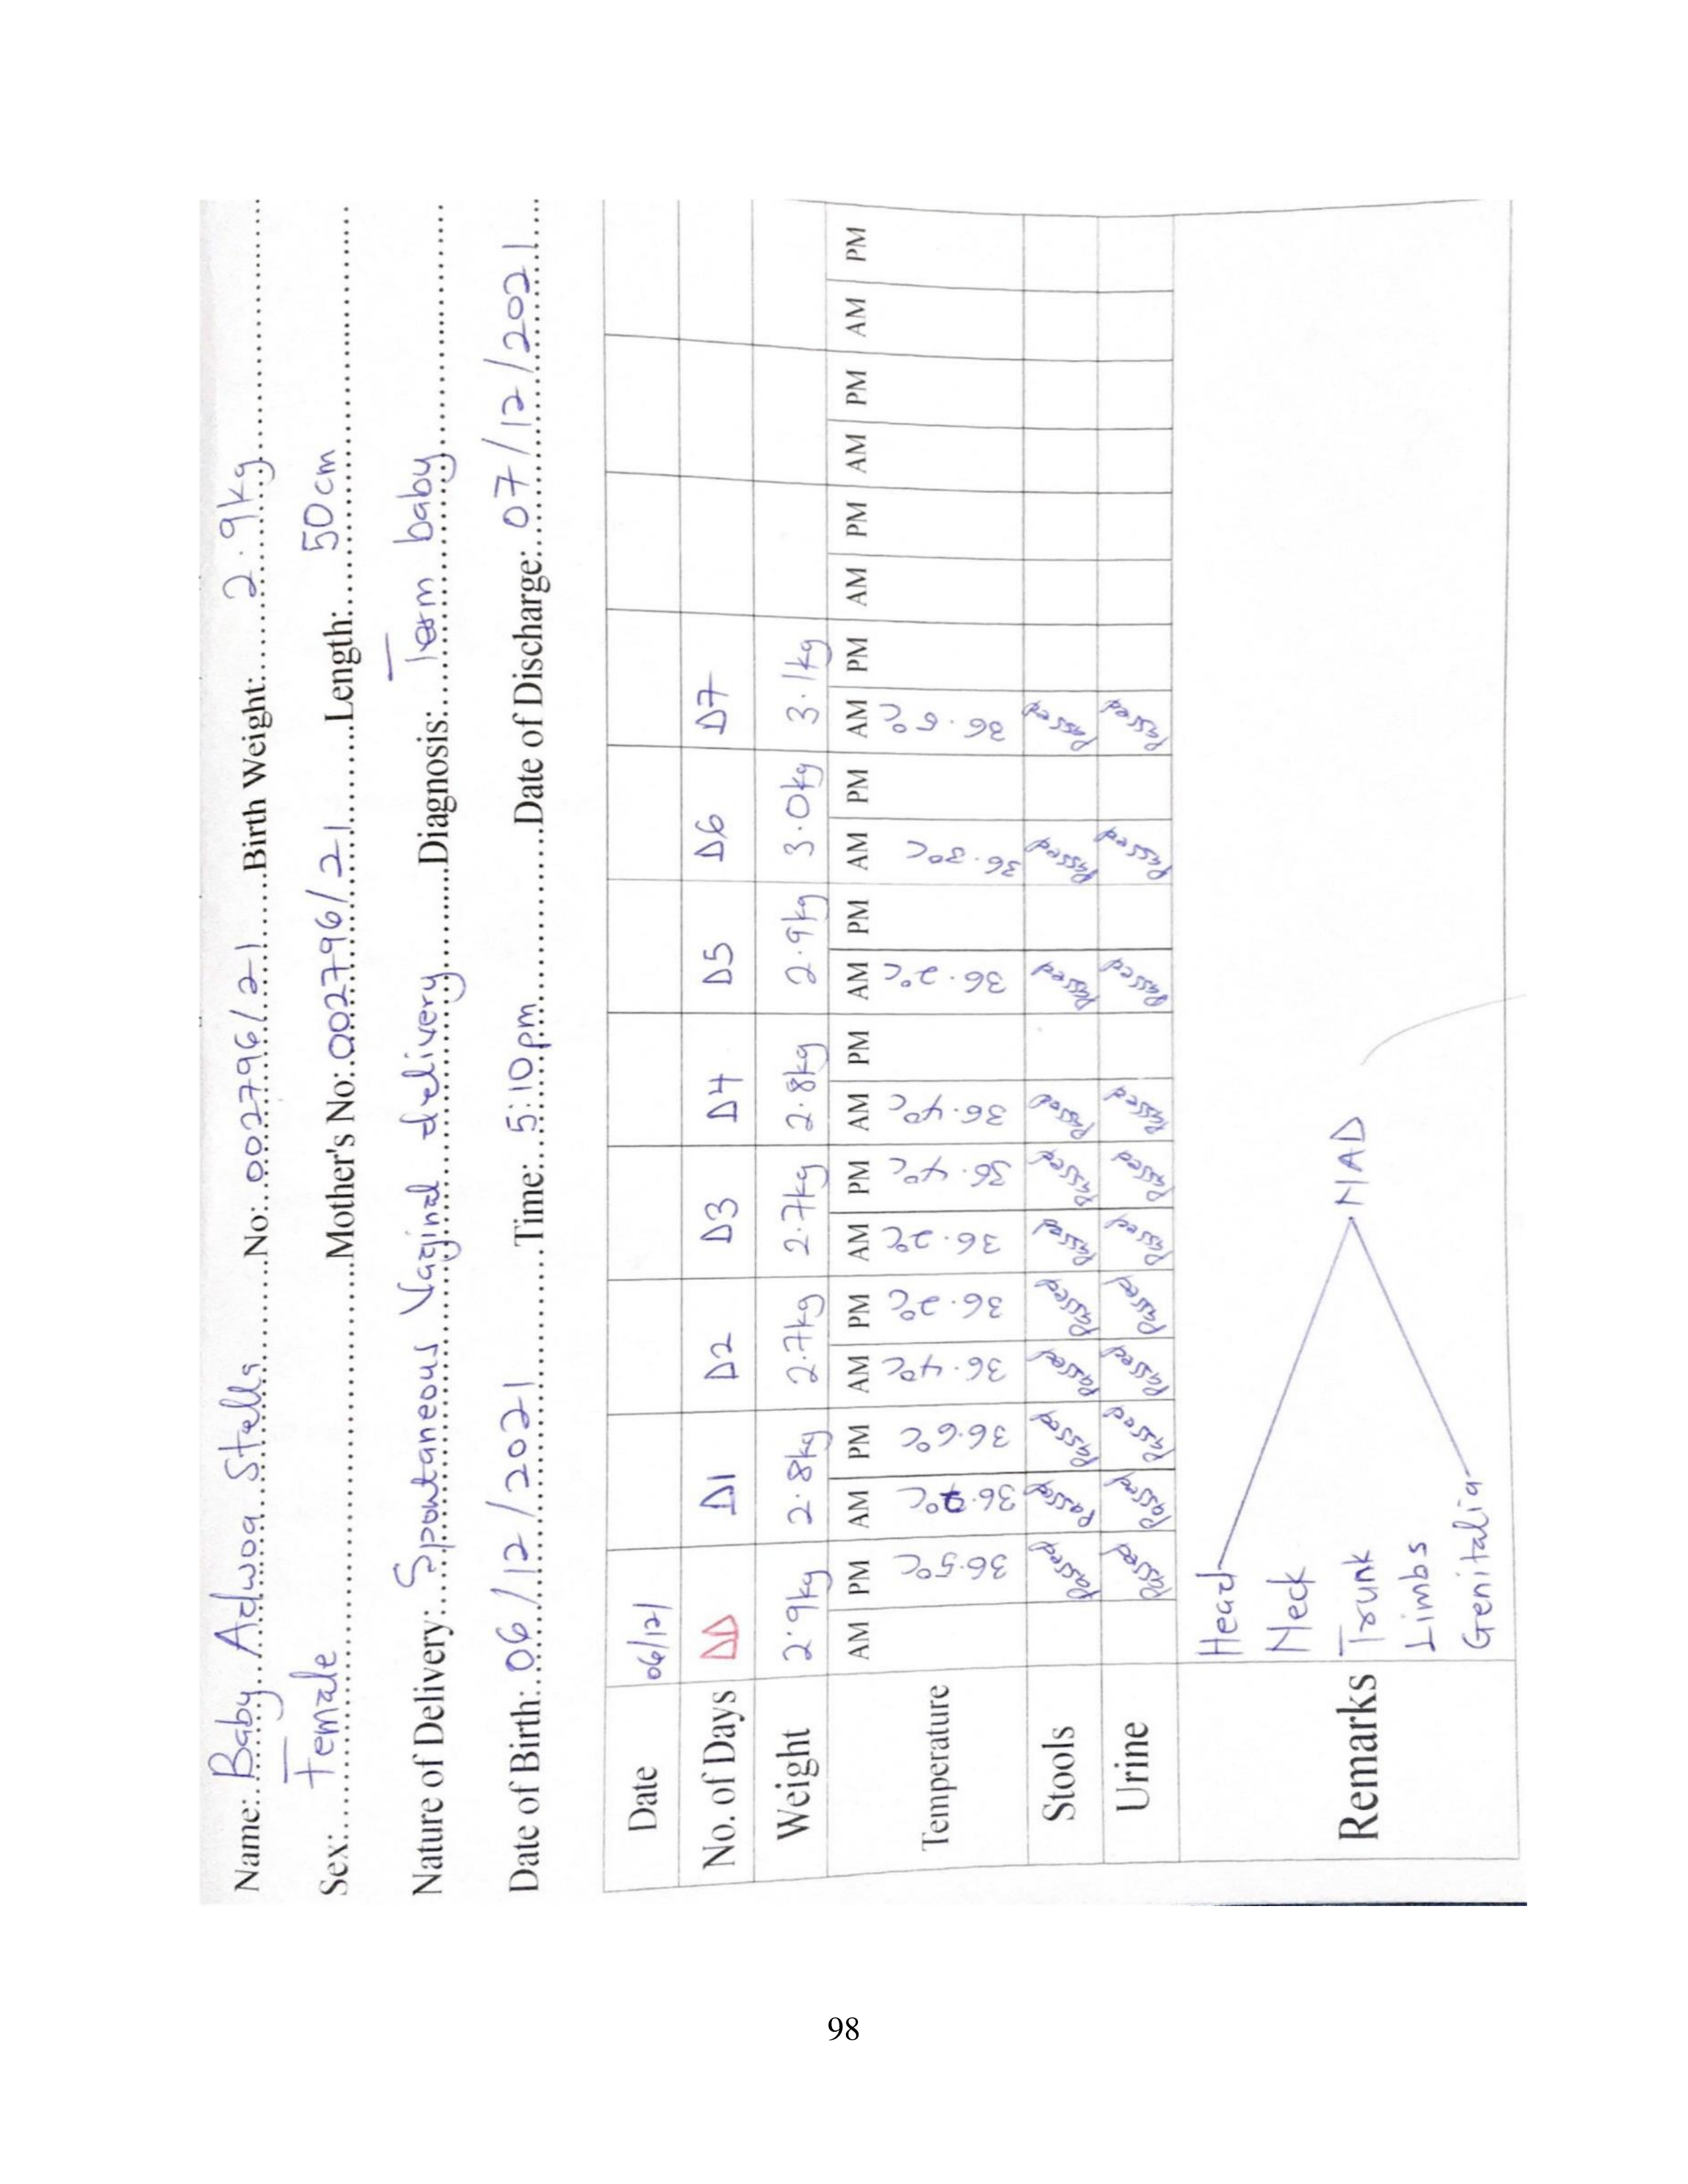 Name: Baby Adwoa Stella No: 002796/21 Birth Weight: 2.9kg
Sex: Female Mother's No: 002796/21 Length: 50cm
Nature of Delivery: Spontaneous Vaginal delivery Diagnosis: Term baby
Date of Birth: 06/12/2021 Time: 5:10pm Date of Discharge: 07/12/2021
Date 06/12/
No. of Days DD D1 D2 D3 D4 D5 D6 D7
Weight 2.9kg 2.8kg 2.7kg 2.7kg 2.8kg 2.9kg 3.0kg 3.1kg
AM PM AM PM AM PM AM PM AM PM AM PM AM PM AM PM AM PM AM PM AM PM
Temperature 36.5°C 36.6°C 36.4°C 36.2°C 36.2°C 36.4°C 36.4°C 36.2°C
Stools Passed Passed Passed Passed Passed Passed Passed Passed Passed Passed Passed
Urine Passed Passed Passed Passed Passed Passed Passed Passed Passed Passed Passed
Remarks
Head
Neck
Trunk NAD
Limbs
Genitalia
98